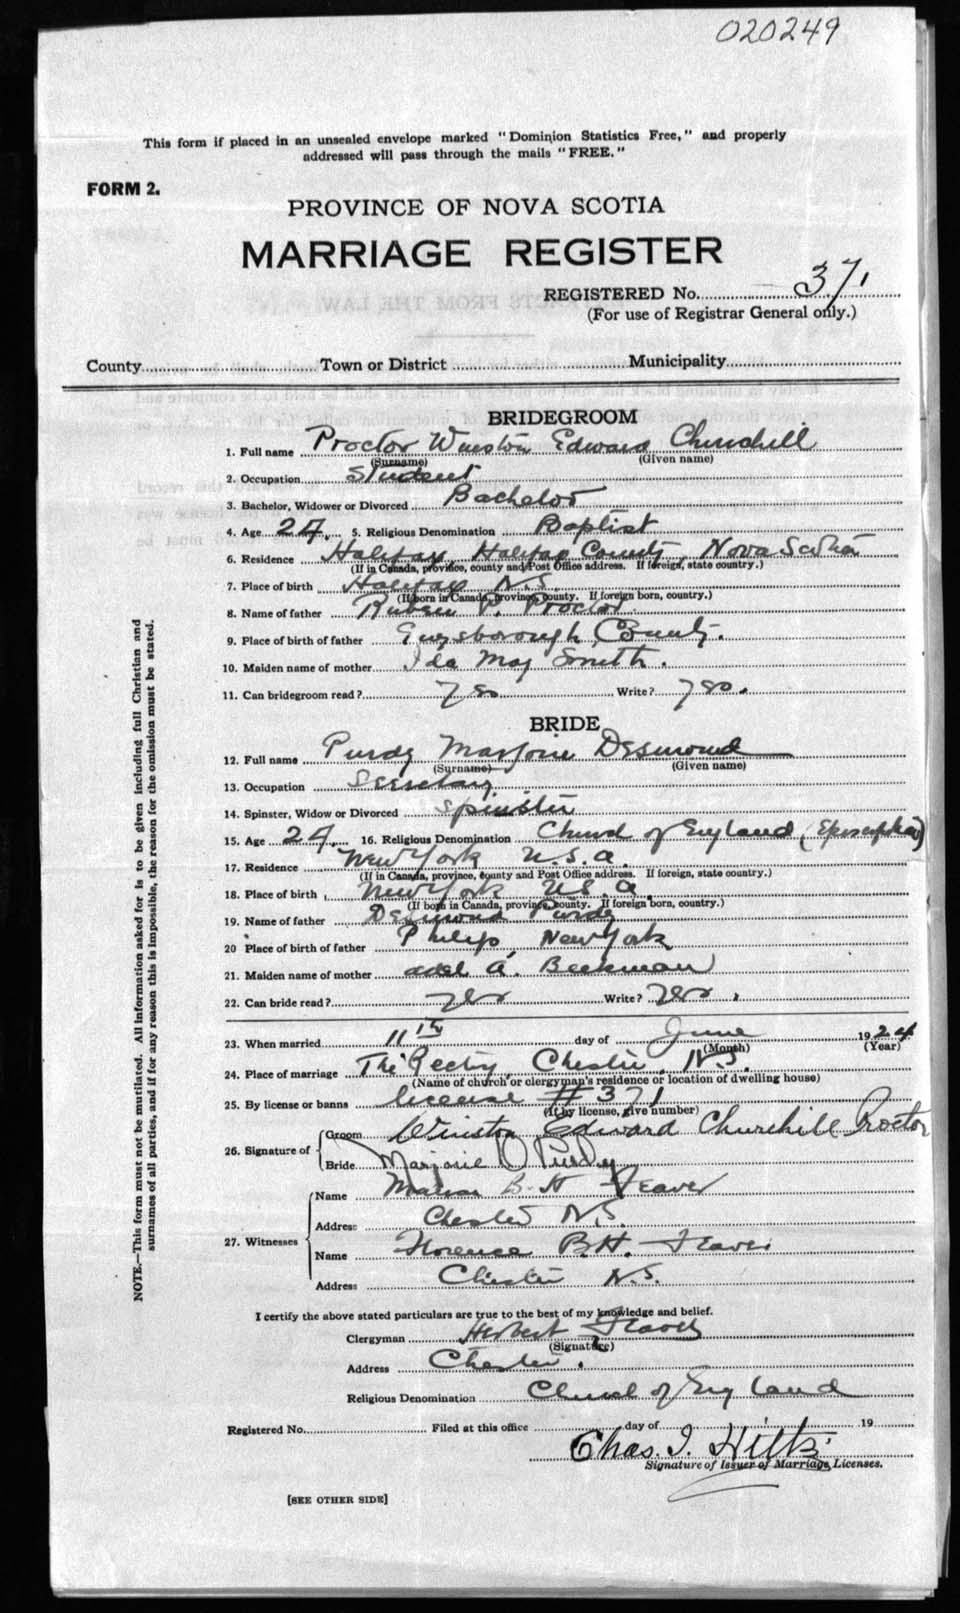 020249
This form if placed in an unsealed envelope marked "Dominion Statistics Free," and properly
addressed will pass through the mails "FREE."
FORM 2.
PROVINCE OF NOVA SCOTIA
MARRIAGE REGISTER
REGISTERED No. 371
(For use of Registrar General only.)
County Town or District Municipality
BRIDEGROOM
1. Full name Proctor Winston Edward Churchill
(Surname) (Given name)
2. Occupation Student
3. Bachelor, Widower or Divorced Bachelor
4. Age 24. 5. Religious Denomination Baptist
6. Residence Halifax, Halifax County, Nova Scotia
(If in Canada, province, county and Post Office address. If foreign, state country.)
7. Place of birth Halifax N.S.
(If born in Canada, province, county. If foreign born, country.)
8. Name of father Ruben P. Proctor
9. Place of birth of father Guysborough County.
10. Maiden name of mother Ida May Smith.
11. Can bridegroom read? Yes Write? Yes.
BRIDE
12. Full name Purdy Marjorie Desmond
(Surname) (Given name)
13. Occupation Secretary
14. Spinster, Widow or Divorced Spinster
15. Age 24. 16. Religious Denomination Church of England (Episcopalian)
17. Residence New York U.S.A.
(If in Canada, province, county and Post Office address. If foreign, state country.)
18. Place of birth New York U.S.A.
(If born in Canada, province, county. If foreign born, country.)
19. Name of father Desmond Purdy
20 Place of birth of father Philips, New York
21. Maiden name of mother Adel A. Beekman
22. Can bride read? Yes Write? Yes.
23. When married 11th day of June 1924
(Month) (Year)
24. Place of marriage The Rectory, Chester, N.S.
(Name of church or clergyman's residence or location of dwelling house)
25. By license or banns license #371
(If by license, give number)
26. Signature of Groom Winston Edward Churchill Proctor
Bride Marjorie D Purdy
27. Witnesses
Name B. H
Address Chester N.S.
Name Florence B.H.
Address Chester N.S.
I certify the above stated particulars are true to the best of my knowledge and belief.
Clergyman Herbert
(Signature)
Address Chester.
Religious Denomination Church of England
Registered No. Filed at this office day of 19
Chas. I. Hiltz
Signature of Issuer of Marriage Licenses.
[SEE OTHER SIDE]
NOTE.—This form must not be mutilated. All information asked for is to be given including full Christian and
surnames of all parties, and if for any reason this is impossible, the reason for the omission must be stated.